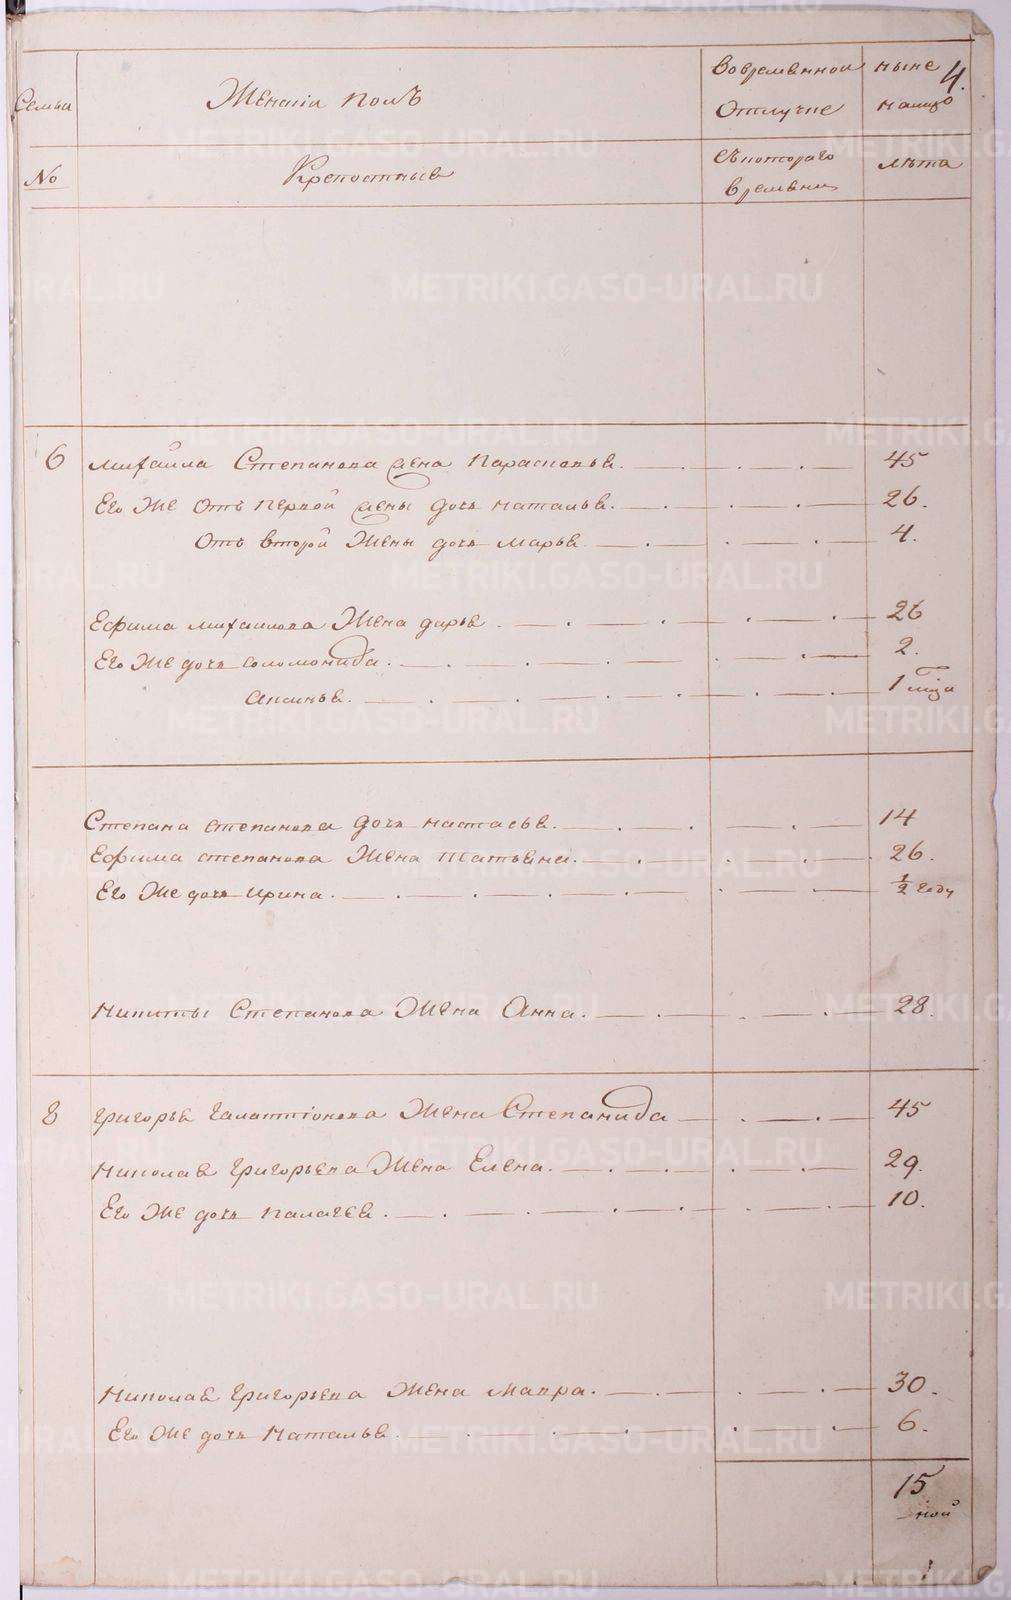 Семьи
Женскій полъ
Вовременной Отлучке
ныне налицо
4.
№
Крепостные
съкотораго времени
лѣта
6 Михайла Степанова жена Парасковья. 45
Его же Отъ первой жены дочь наталья. 26.
Отъ второй жены дочь марья 4.
Ефима михаилова жена дарья 26
Его же дочь соломонида. 2.
аксинья. 1 мца
Степана степанова дочь настасья. 14
Ефима степанова жена татьяна. 26.
Его же дочь ирина. 1/2 году
Никиты Степанова жена Анна. 28.
8 григорья галактіонова жена Степанида 45
Николая григорьева жена Елена. 29.
Его же дочь палагея. 10.
Николая григорьева жена мавра. 30.
Его же дочь Наталья. 6.
15
METRIKI.GASO-URAL.RU